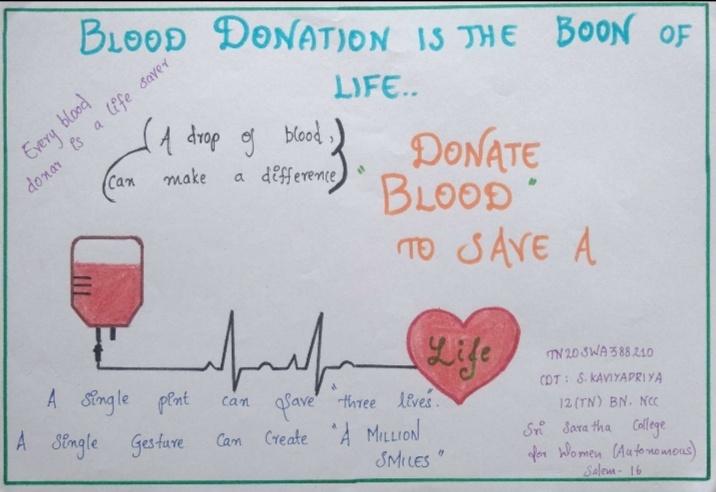 BLOOD DONATION IS THE BOON OF
LIFE..
Every blood
donar is a life saver
(A drop of blood,
can make a difference)
"DONATE
BLOOD"
TO SAVE A
Life
A single pint can save "three lives".
A Single Gesture Can Create "A MILLION
SMILES"
TN20SWA388210
CDT: S. KAVIYAPRIYA
12(TN) BN. NCC
Sri Saratha College
for Women (Autonomous)
Salem-16